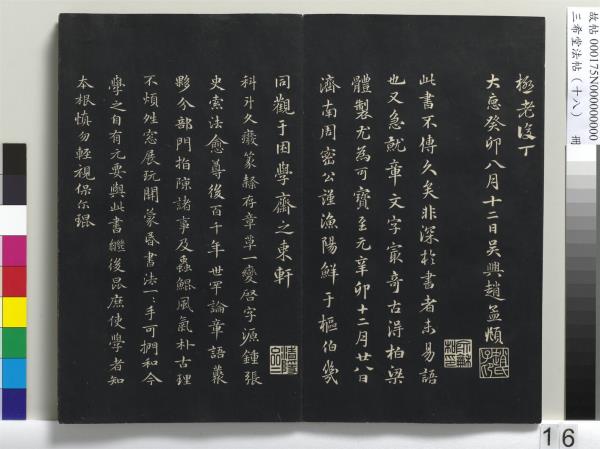 極老後丁
大德癸卯八月十二日吳興趙孟頫
此書不傳久矣非深於書者未易語
也又急就章文字寂奇古得柏梁
體製尤為可寶至元辛卯十二月廿八日
濟南周密公謹漁陽鮮于樞伯幾
同觀于困學齋之東軒
科斗久廢篆隸存章草一變啓字源鍾張
史索法愈尊後百千年世罕論章語叢
夥分部門指陳諸事及蟲鯤風氣朴古理
不煩姓
展玩開蒙昏書法一一手可捫和令
學之自有元要與此書繼後昆庶使學者知
本根慎勿輕視保尔琨
故帖 000175N000000000
三希堂法帖(十八) 冊
16